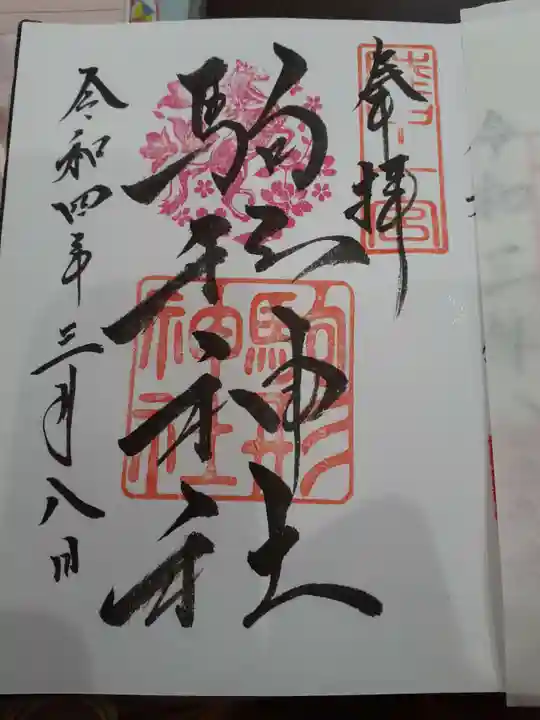 奉拝
駒形神社
駒形
神社
令和四年三月八日